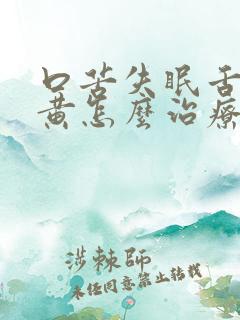 口苦失眠舌
黄怎麼治療
涉棘師
未经同意禁止转载